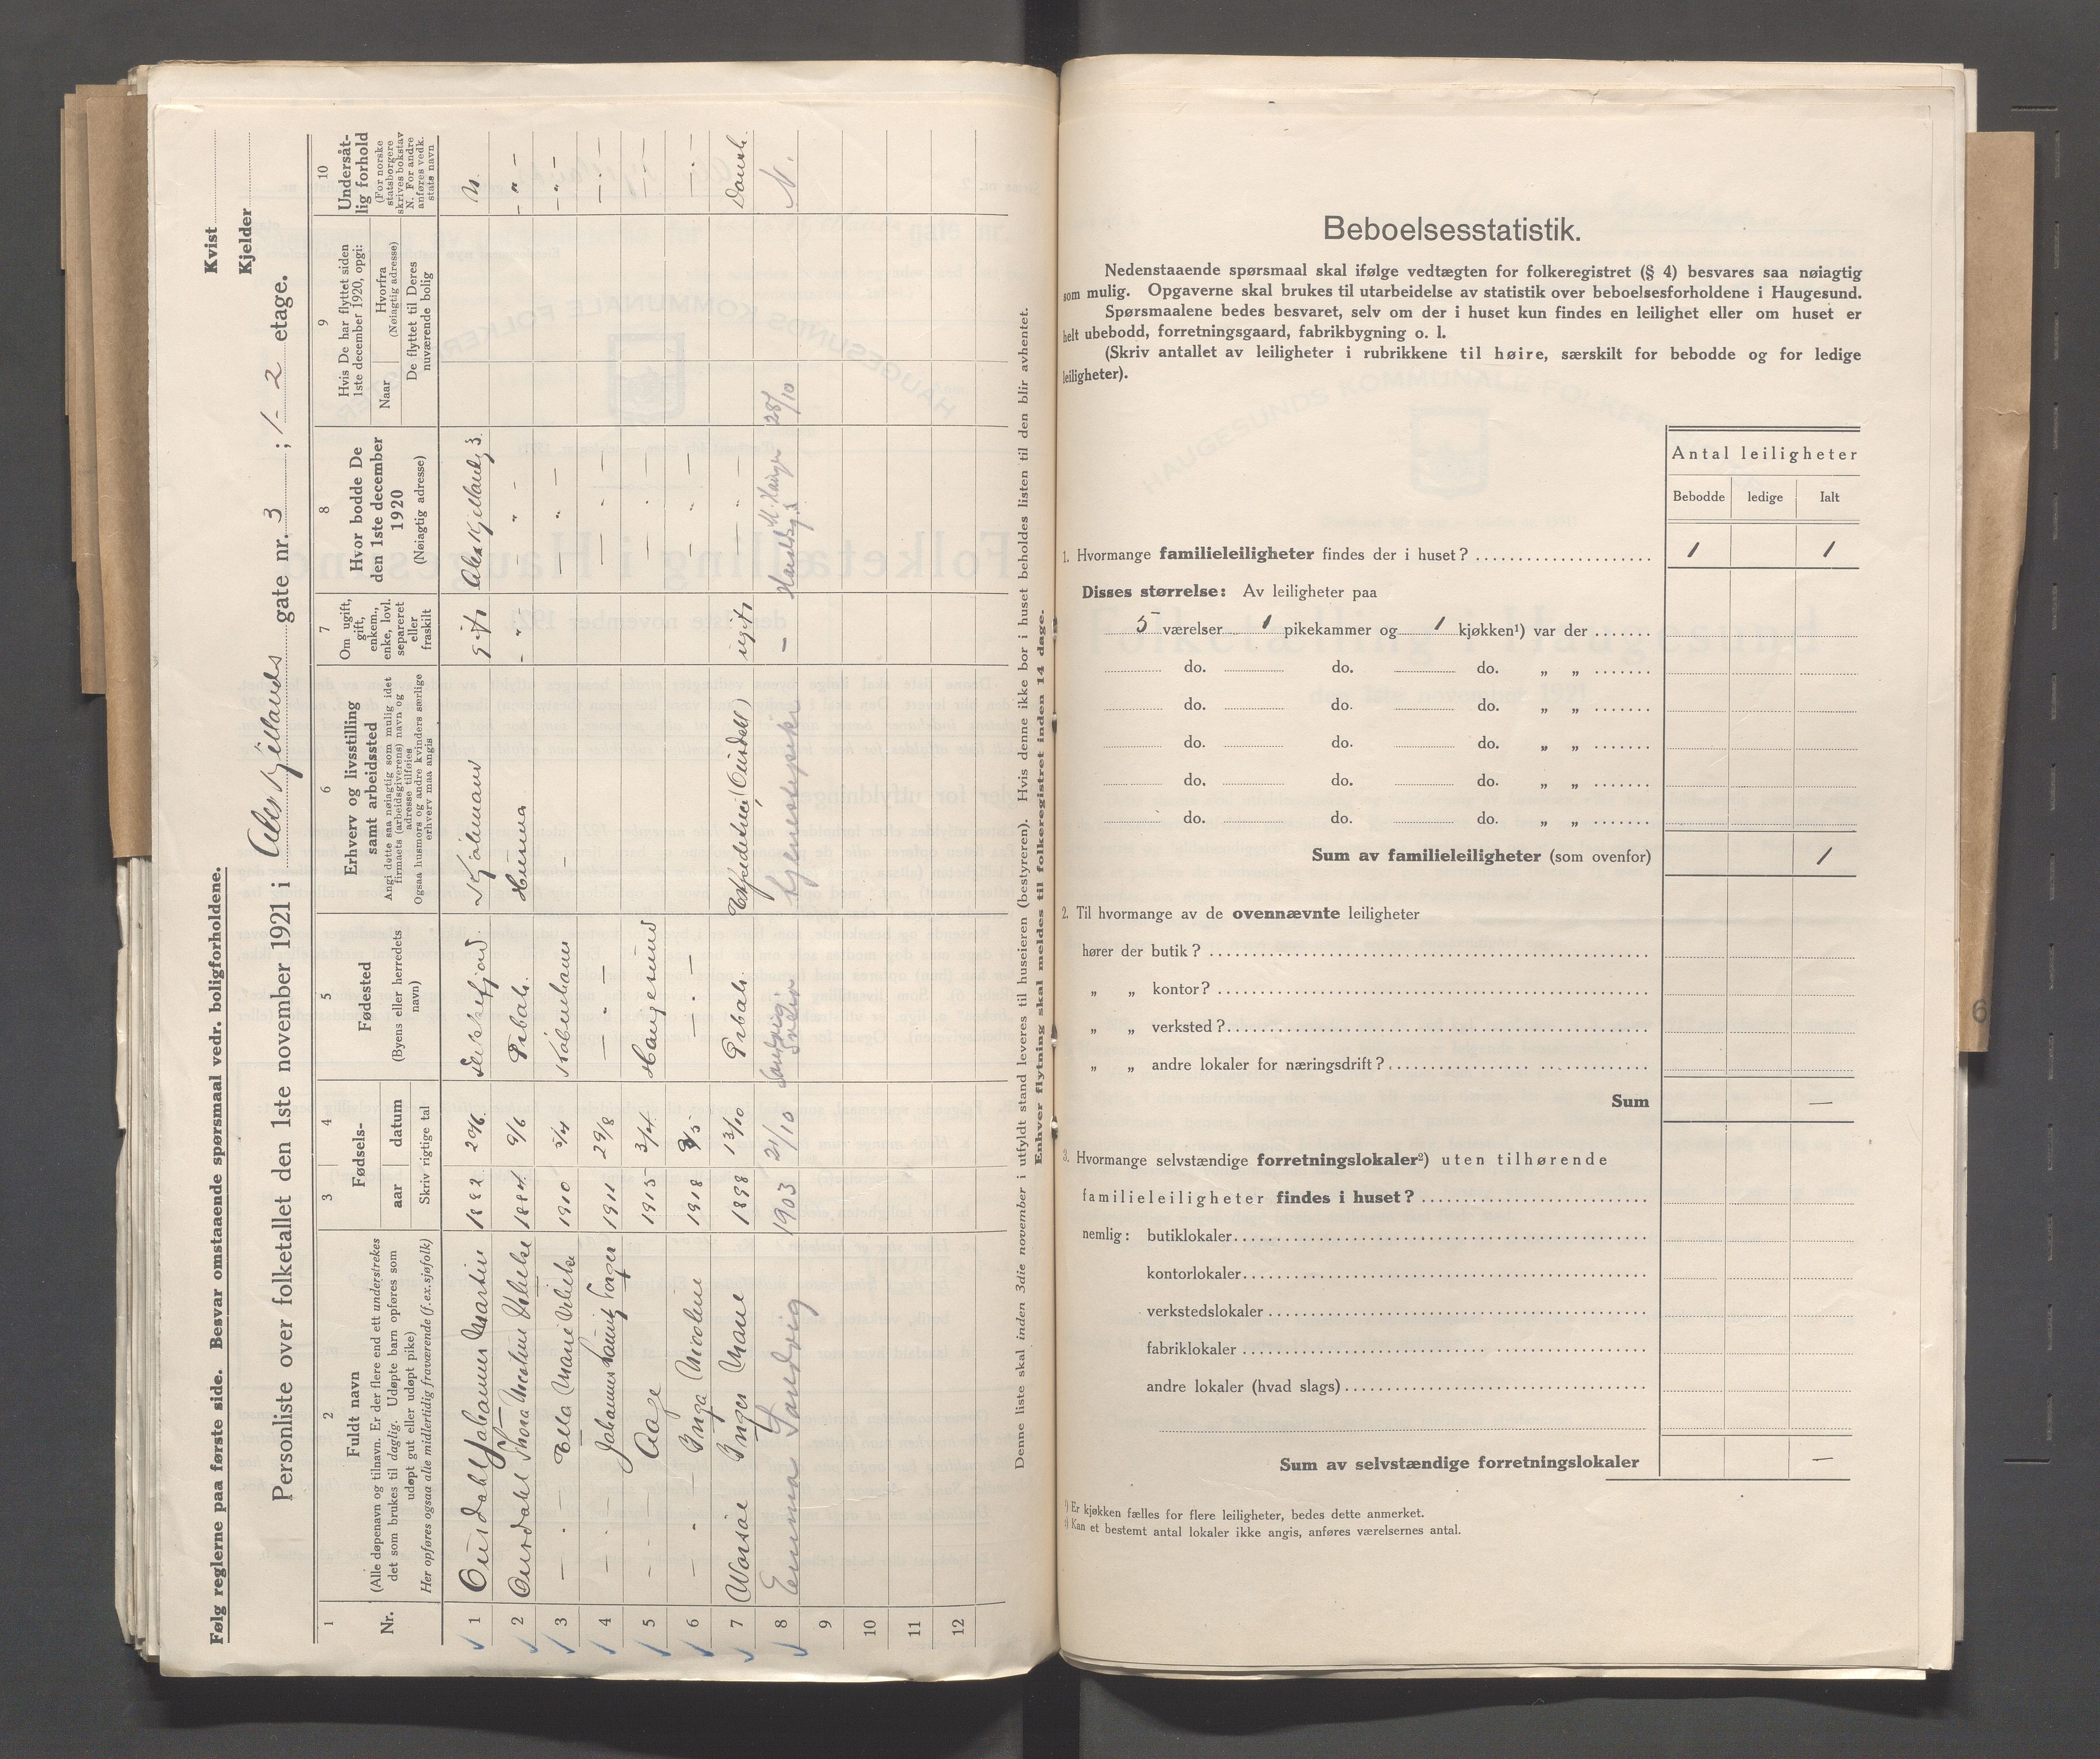 Følg reglerne paa første side. Besvar omstaaende spørsmaal vedr. boligforholdene.
Personliste over folketallet den 1ste november 1921 i Alex Kjellands gate nr. 3 ; 1-2 etage.
Kvist
Kjelder
1
Nr.
2
Fuldt navn
(Alle døpenavn og tilnavn. Er der flere end ett understrekes
det som brukes til daglig. Udøpte barn opføres som
udøpt gut eller udøpt pike)
Her opføres ogsaa alle midlertidig fraværende (f. ex. sjøfolk)
3 4
Fødsels-
aar datum
Skriv rigtige tal
5
Fødested
(Byens eller herredets
navn)
6
Erhverv og livsstilling
samt arbeidssted
Angi dette saa nøiagtig som mulig idet
firmaets (arbeidsgiverens) navn og
adresse tilføies
Ogsaa husmors og andre kvinders særlige
erhverv maa angis
7
Om ugift,
gift,
enkem.,
enke, lovl.
separeret
eller
fraskilt
8
Hvor bodde De
den 1ste december
1920
(Nøiagtig adresse)
9
Hvis De har flyttet siden
1ste december 1920, opgi:
Naar
Hvorfra
(Nøiagtig adresse)
De flyttet til Deres
nuværende bolig
10
Undersåt-
lig forhold
(For norske
statsborgere
skrives bokstav
N. For andre
anføres vedk.
stats navn
1 Ousdahl Johannes Martin 1882 29/6 Flekkefjord Kjøbmand gift Alex Kjellandsg 3. N.
2 Ousdahl Thora Nicoline Vibeke 1884 9/6 Ørbæk. Husmor - " - - " - - " -
3 — . — Ella Marie Vibeke 1910 5/4 København — — " — — " —
4 — . — Johannes Lauritz Torger 1911 29/8 — . — — . — — . —
5 — . — Aage 1915 3/4 Haugesund — . — — . —
6 — . — Inga Nicoline 1918 9/5 — . — — . — — . —
7 Worsøe Inger Marie 1898 13/10 Ørbæk. Expeditrice (Ousdahl) ugift — . — Dansk.
8 Emma Sandvig 1903 21/10 Sandvig Sveio tjenestepike — 28/10 N.
9
10
11
12
Denne liste skal inden 3die november i utfyldt stand leveres til huseieren (bestyreren). Hvis denne ikke bor i huset beholdes listen til den blir avhentet.
Enhver flytning skal meldes til folkeregistret inden 14 dage.
Beboelsesstatistik.
Nedenstaaende spørsmaal skal ifølge vedtægten for folkeregistret (§ 4) besvares saa nøiagtig
som mulig. Opgaverne skal brukes til utarbeidelse av statistik over beboelsesforholdene i Haugesund.
Spørsmaalene bedes besvaret, selv om der i huset kun findes en leilighet eller om huset er
helt ubebodd, forretningsgaard, fabrikbygning o. l.
(Skriv antallet av leiligheter i rubrikkene til høire, særskilt for bebodde og for ledige
leiligheter).
Antal leiligheter
Bebodde ledige Ialt
1. Hvormange familieleiligheter findes der i huset? 1 1
Disses størrelse: Av leiligheter paa
5 værelser 1 pikekammer og 1 kjøkken¹) var der
do. do. do. „ „
do. do. do. „ „
do. do. do. „ „
do. do. do. „ „
do. do. do. „ „
Sum av familieleiligheter (som ovenfor) 1
2. Til hvormange av de ovennævnte leiligheter
hører der butik?
„ „ kontor?
„ „ verksted?
„ „ andre lokaler for næringsdrift?
Sum —
3. Hvormange selvstændige forretningslokaler²) uten tilhørende
familieleiligheter findes i huset?
nemlig: butiklokaler
kontorlokaler
verkstedslokaler
fabriklokaler
andre lokaler (hvad slags)
Sum av selvstændige forretningslokaler —
¹) Er kjøkken fælles for flere leiligheter, bedes dette anmerket.
²) Kan et bestemt antal lokaler ikke angis, anføres værelsernes antal.
6